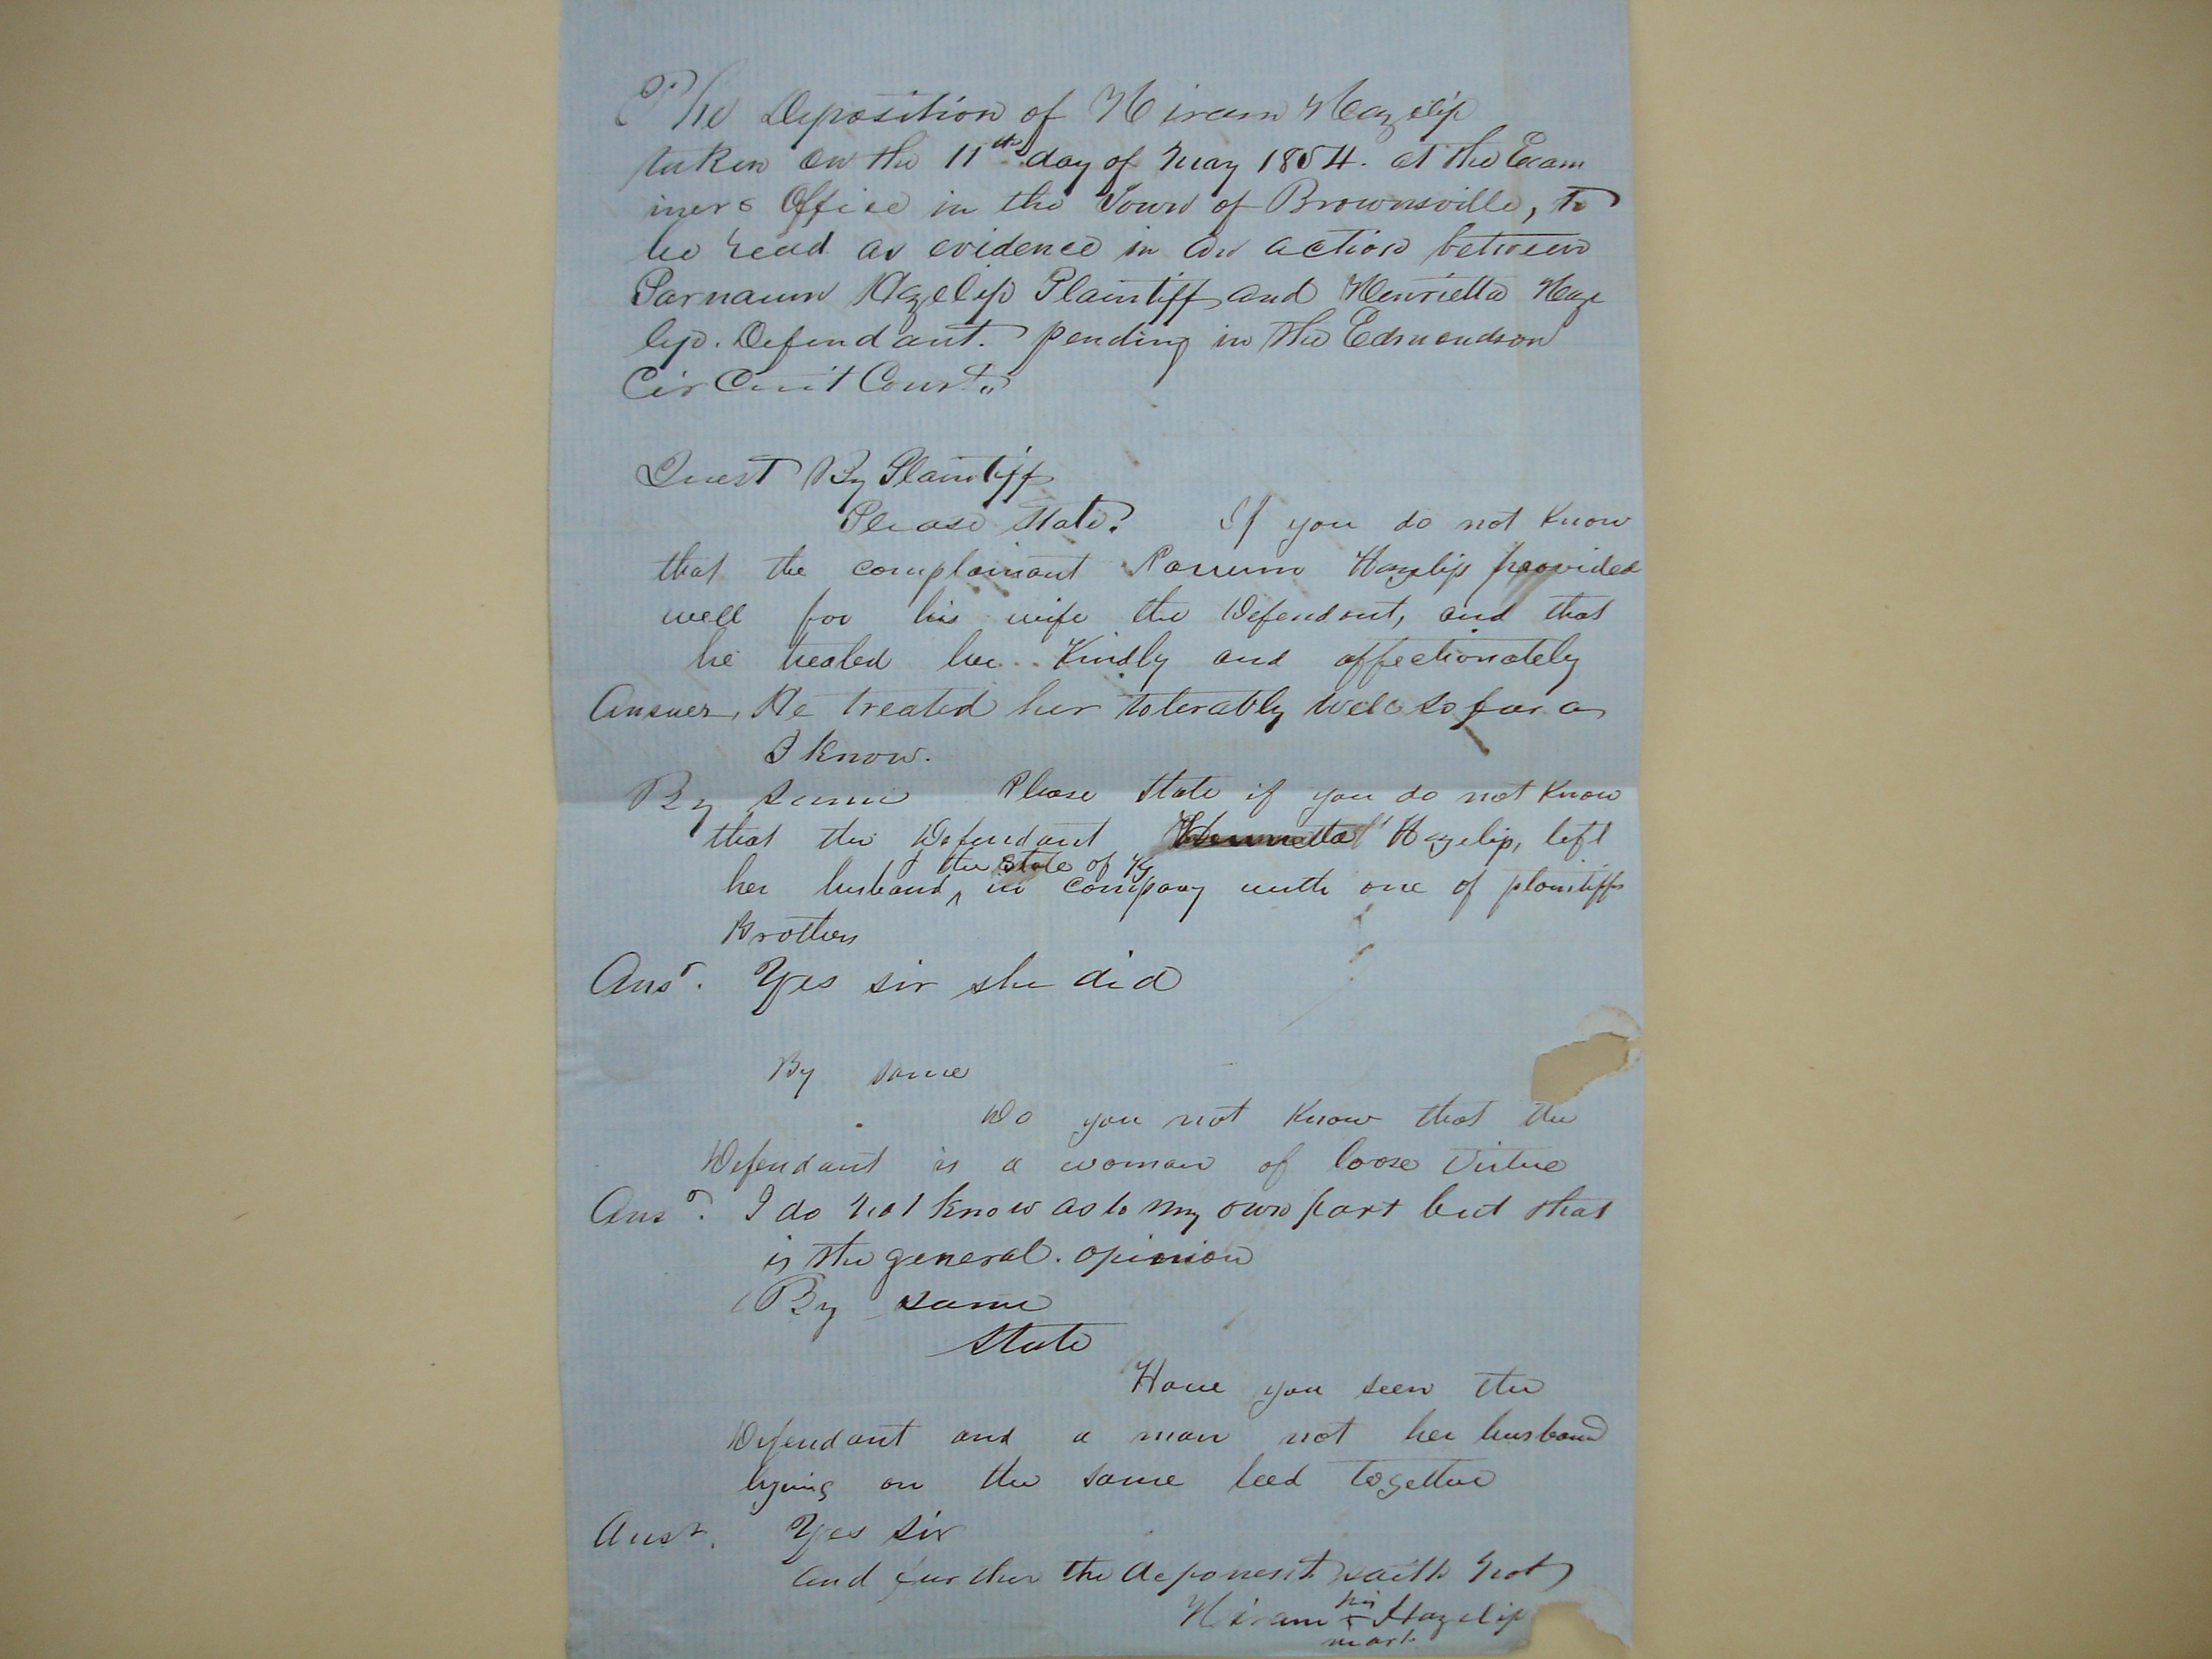 The Deposition of Hiram Hazelip
taken on the 11th day of May 1854. at the Exam
iners Office in the Town of Brownsville, to
be read as evidence in an action between
Parnaum Hazelip Plaintiff and Henrietta Haze
lip. Defendant. pending in the Edmondson
Circuit Court.
Quest By Plaintiff
Please State? If you do not Know
that the complainant Hazelip provided
well for his wife the Defendant, and that
he treated her Kindly and affectionately
Answer, He treated her tolerably well so far as
I know.
By same Please State if you do not Know
that the Defendant Henrietta Hazelip, left
& the State of Ky
her husband ^ in company with one of plaintiffs
Brothers
Ansr. Yes sir she did
By same
Do you not Know that the
Defendant is a woman of loose Virtue
Ansr. I do not know as to my own part but that
is the general. opinion
By same
State
Have you seen the
Defendant and a man not her husband
lying on the same bed together
Ansr. Yes sir
and further the deponent saith not
his
Hiram x Hazelip
mark